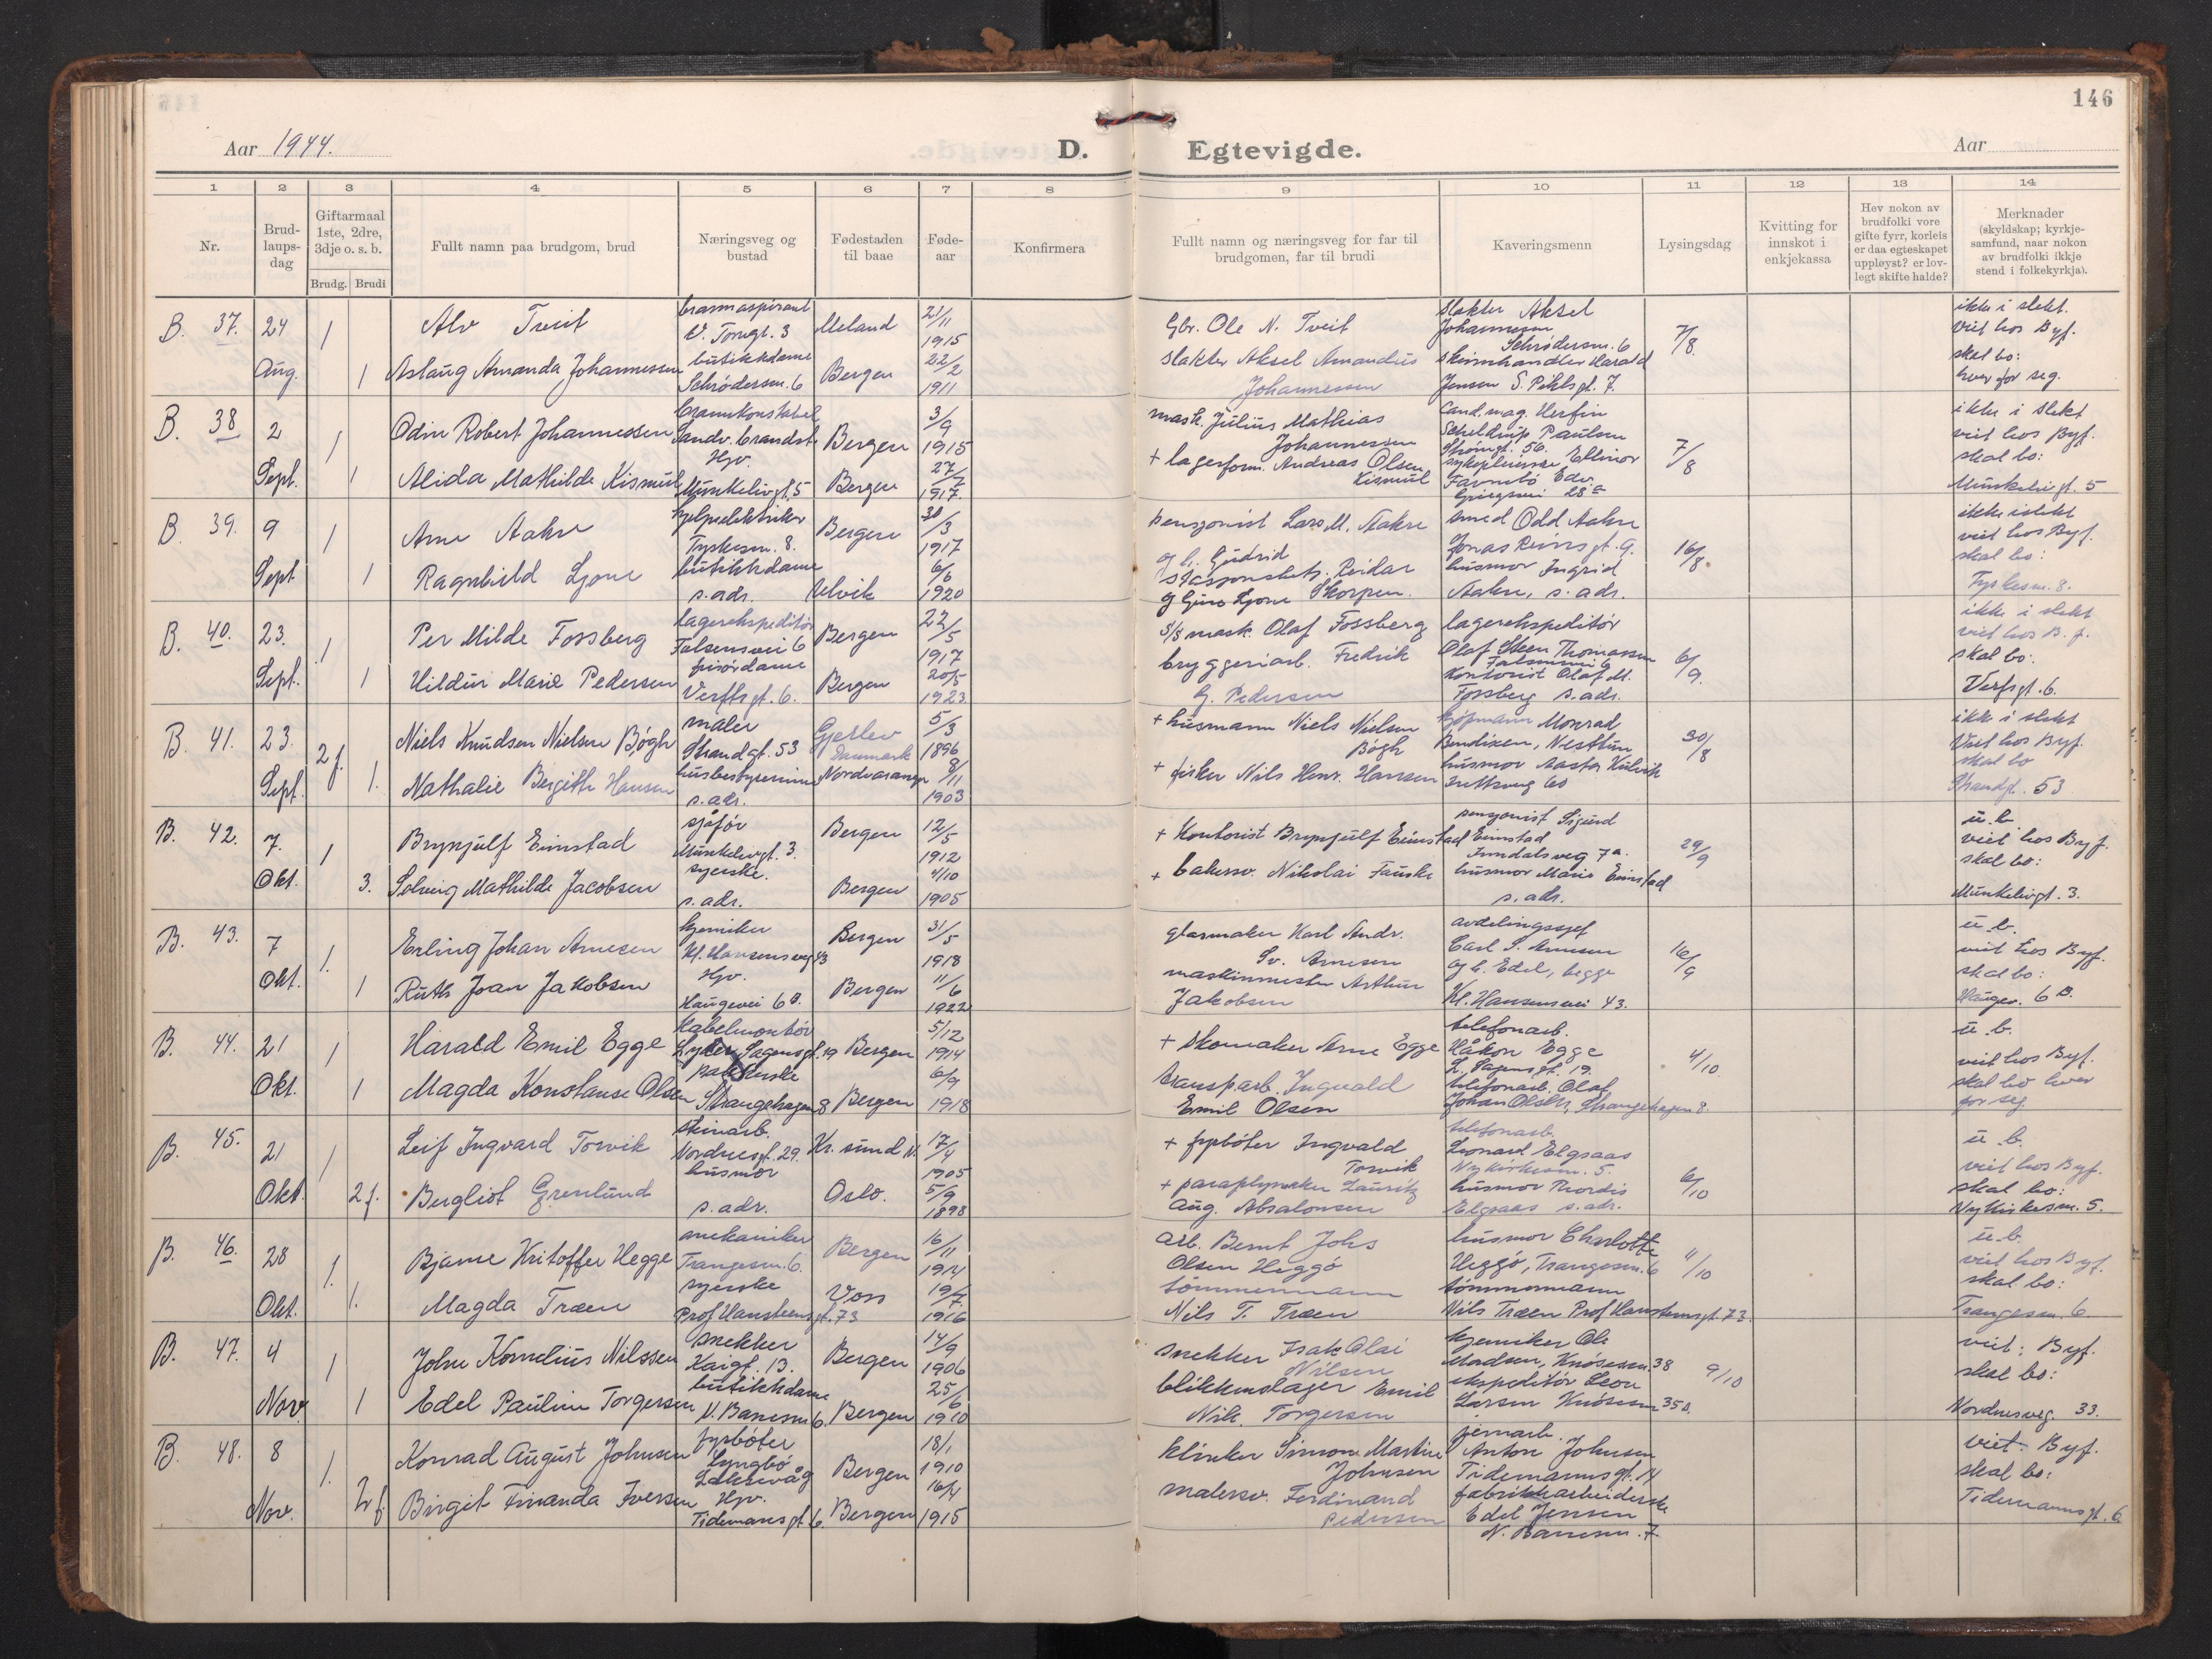 146
Aar 1944.
D.
Egtevigde.
Aar
1 2 3 4 5 6 7 8 9 10 11 12 13 14
Nr.
Brud-
laups-
dag
Giftarmaal
1ste, 2dre,
3dje o. s. b.
Brudg. Brudi
Fullt namn paa brudgom, brud
Næringsveg og
bustad
Fødestaden
til baae
Føde-
aar
Konfirmera
Fullt namn og næringsveg for far til
brudgomen, far til brudi
Kaveringsmenn
Lysingsdag
Kvitting for
innskot i
enkjekassa
Hev nokon av
brudfolki vore
gifte fyrr, korleis
er daa egteskapet
uppløyst? er lov-
legt skifte halde?
Merknader
(skyldskap; kyrkje-
samfund, naar nokon
av brudfolki ikkje
stend i folkekyrkja).
B. 37. 24 Aug.
1 Alv Tveit
brannaspirant
V. Torvgt. 3
Meland
21/11 1915
1 Aslaug Amanda Johannessen
butikkdame
Schrödersm. 6
Bergen
22/2 1911
Gbr. Ole N. Tveit
slakter Aksel Amandus
Johannessen
Slakter Aksel
Johannessen
Schrödersm. 6
skinnhandler Harald
Jensen S. Pihlsgt. 7.
7/8.
ikke i slekt.
viet hos Byf.
skal bo:
hver for seg.
B. 38 2 Sept.
1 Odin Robert Johannessen
brannkonstabel
Sandv. brandst.
Bergen
3/9 1915
1 Alida Mathilde Kismul
Hjv.
Munkelivgt. 5
Bergen
27/7 1917.
mask. Julius Mathias
Johannessen
+ lagerform. Andreas Olsen
Kismul
Cand. mag. Herfin
Scheldrup Paulsen
Strømgt. 56.
sykepleierske Ellinor
Favnebö Edv.
Griegsvei 28a
7/8
ikke i slekt
viet hos Byf.
skal bo:
Munkelivgt. 5
B. 39. 9 Sept
1 Arne Aakre
hjelpeelektriker
Tyskesm. 8.
Bergen
30/3 1917
1 Ragnhild Ljone
butikkdame
s. adr.
Ulvik
6/6 1920
pensjonist Lars M. Aakre
g. b. Gudrid
stasjonsbetj. Reidar
Skorpen.
smed Odd Aakre
Jonas Reinsgt. 9.
husmor Ingrid
Aakre, s. adr.
16/8.
ikke i slekt
viet hos Byf.
skal bo:
Tyskesm. 8.
B. 40. 23. Sept.
1 Per Milde Fossberg
lagerekspeditör
Falsensvei 6
Bergen
22/5 1917
1 Hildur Marie Pedersen
frisørdame
Verftsgt. 6.
Bergen
20/5 1923
s/s mask. Olaf Fossberg
bryggeriarb. Fredrik
G. Pedersen
lagerekspeditör
Olaf Steen Thomassen
Falsensvei 6
Kontorist Olaf M.
Fossberg s. adr.
6/9.
ikke i slekt
viet hos B. f.
skal bo:
Verfsgt. 6.
B. 41. 23. Sept.
2 f. Niels Knudsen Nielsen Bögh
maler
Strandgt. 53
Gjerlev
Danmark
5/3 1896
1. Nathalie Bergithe Hansen
husbestyrerinne
s. adr.
Nordvaranger
8/11 1903
+ husmann Niels Nielsen
Bögh
+ fisker Nils Henr. Hansen
kjöpmann Monrad
Bendixen, Nesttun
husmor Aasta Kulvik
60
30/8
ikke i slekt
Viet hos Byf.
skal bo
Strandgt. 53
B. 42. 7. Okt.
1 Brynjulf Eimstad
sjåför
Munkelivgt. 3.
Bergen
12/5 1912
3. Solveig Mathilde Jacobsen
syerske.
s. adr.
Bergen
4/10 1905
+ Kontorist Brynjulf Eimstad
+ bakersv. Nikolai Fauske
pensjonist Sigurd
Eimstad
Inndalsveg 7a.
husmor Marie Eimstad
s. adr.
29/9
u. b.
viet hos Byf.
skal bo:
Munkelivgt. 3.
B. 43. 7 Okt.
1. Erling Johan Arnesen
kjemiker
Kl. Hansensveg 43
Bergen
31/5 1918
1 Ruth Joan Jakobsen
Hjv.
Haugevei 6 B.
Bergen
11/6 1922
glasmaker Karl Andr.
Sv. Arnesen
maskinmester Arthur
Jakobsen
avdelingssjef
Carl S. Arnesen
og h. Edel, begge
Kl. Hansensvei 43.
16/9
u. b.
viet hos Byf.
skal bo:
Haugev. 6 B.
B. 44. 21 Okt.
1 Harald Emil Egge
Kabelmontör
Lyder Sagensgt. 19
Bergen
5/12 1914
1 Magda Konstanse Olsen
Strangehagen 8
Bergen
6/9 1918
+ Skomaker Arne Egge
transp.arb. Ingvald
Emil Olsen
telefonarb.
Håkon Egge
L. Sagensgt. 19.
telefonarb. Olaf
Johan Olsen, Strangehagen 8.
4/10.
u. b.
viet hos Byf.
skal bo hver
for seg.
B. 45. 21 Okt.
1 Leif Ingvard Torvik
steinarb.
Nordnesgt. 29.
Kr. sund N.
17/4 1905
2 f. Bergliot Grenlund
husmor
s. adr.
Oslo.
5/9 1898
+ fyrböter Ingvald
Torvik
+ paraplymaker Lauritz
Aug. Absalonsen
telefonarb.
Leonard Elgsaas
Nykirkesm. 5.
husmor Thordis
Elgsaas s. adr.
6/10
u. b.
viet hos Byf.
skal bo:
Nykirkesm. 5.
B. 46. 28 Okt.
1. Bjarne Kristoffer Hegge
mekaniker
Trangesm. 6.
Bergen
16/11 1914
1. Magda Træen
syerske
Prof Hansteensgt. 73
Voss
19/7 1916
arb. Bernt Johs
Olsen Heggö
tömmermann
Nils T. Træen
husmor Charlotte
Heggö, Trangesm. 6
tömmermann
Nils Træen Prof Hansteensgt. 73.
4/10
u. b.
viet hos Byf.
skal bo:
Trangesm. 6
B. 47. 4 Nov
1 John Kornelius Nilssen
snekker
Kaigt. 13.
Bergen
14/9 1906
1 Edel Pauline Torgersen
butikkdame
N. Banesm 6.
Bergen
25/6 1910
snekker Isak Olai
Nilsen
blikkenslager Emil
Nik. Torgersen
kjemiker Ole
Madsen, Knösesm. 38
ekspeditör Leon
Larsen Knösesm 35a.
9/10
viet: Byf.
skal bo:
Nordnesveg. 33.
B. 48. 8 Nov.
1. Konrad August Johnsen
fyrböter
Lyngbö
Laksevåg
Bergen
18/1 1910
2 f Birgit Finanda Iversen
Hjv.
Tidemansgt. 6.
Bergen
16/4 1915
klinker Simon Martin
Johnsen
malersv. Ferdinand
Pedersen
jernarb.
Anton Johnsen
Tidemannsgt. 14
fabrikkarbeiderske
Edel Jensen
N. Banesm. 7.
viet: Byf.
skal bo:
Tidemannsgt. 6.